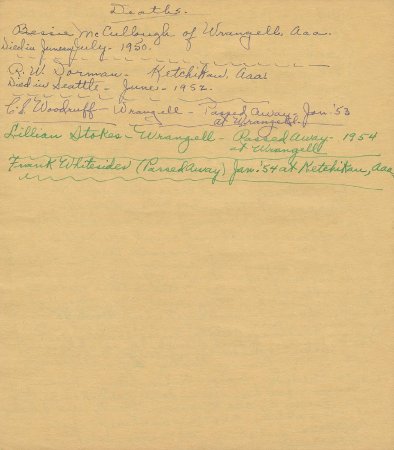 Deaths.
Bessie McCullough of Wrangell, Aaa.
Died in July - 1950.
R. W. Dorman - Ketchikan, Aaa
Died in Seattle - June - 1952.
C.L. Woodruff - Wrangell - Passed Away - Jan '53
at Wrangell.
Lillian Stokes - Wrangell - Passed Away - 1954
at Wrangell
Frank Whitesides (Passed Away) Jan. '54 at Ketchikan, Aaa